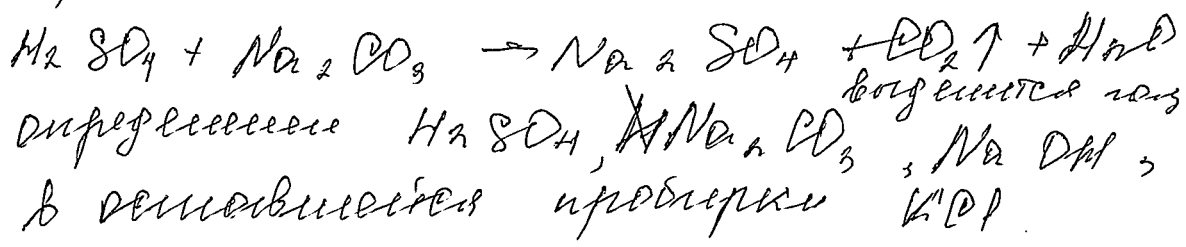 H2SO4 + Na2CO3 → Na2SO4 + CO2↑ + H2O
выделится газ
определили H2SO4, Na2CO3, NaOH,
в оставшейся пробирки KCl